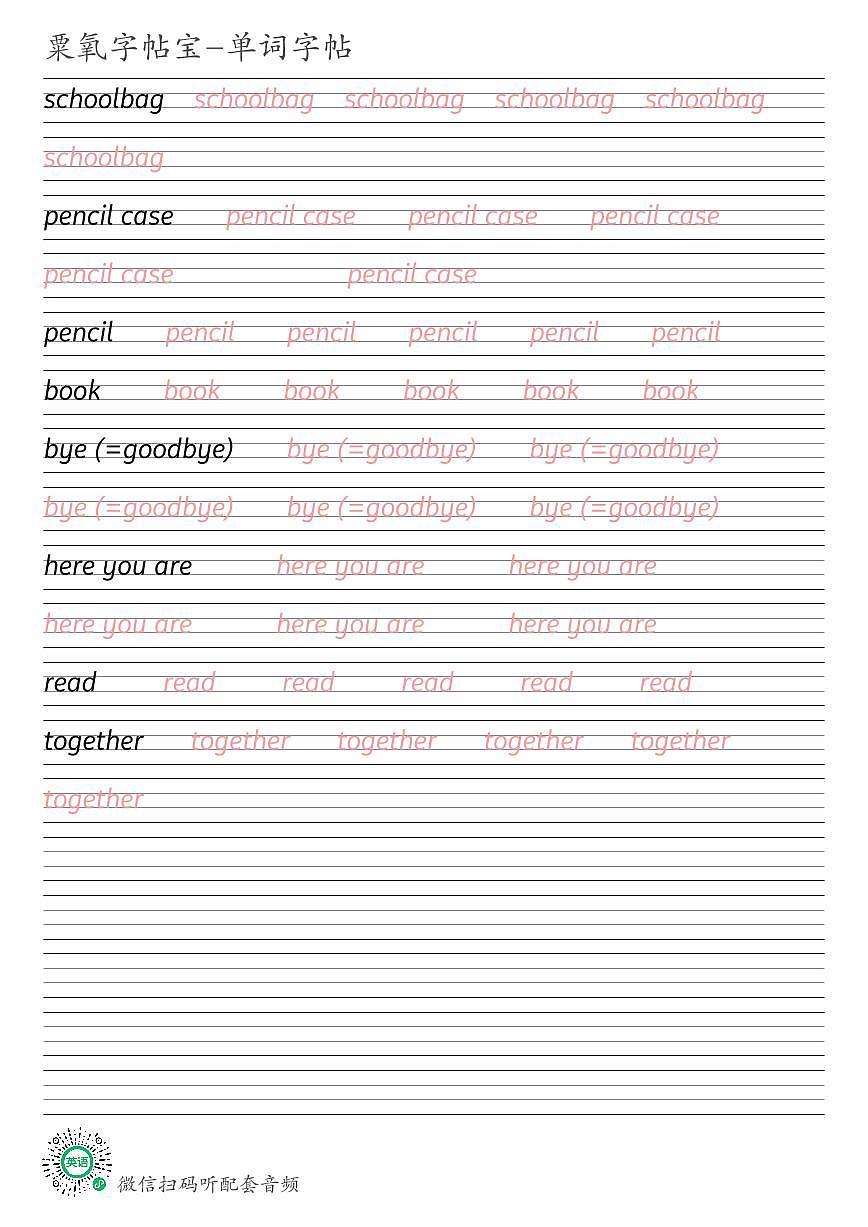 粟氧字帖宝-单词字帖
schoolbag schoolbag schoolbag schoolbag schoolbag
schoolbag
pencil case pencil case pencil case pencil case
pencil case pencil case
pencil pencil pencil pencil pencil pencil
book book book book book book
bye (=goodbye) bye (=goodbye) bye (=goodbye)
bye (=goodbye) bye (=goodbye) bye (=goodbye)
here you are here you are here you are
here you are here you are here you are
read read read read read read
together together together together together
together
英语
微信扫码听配套音频